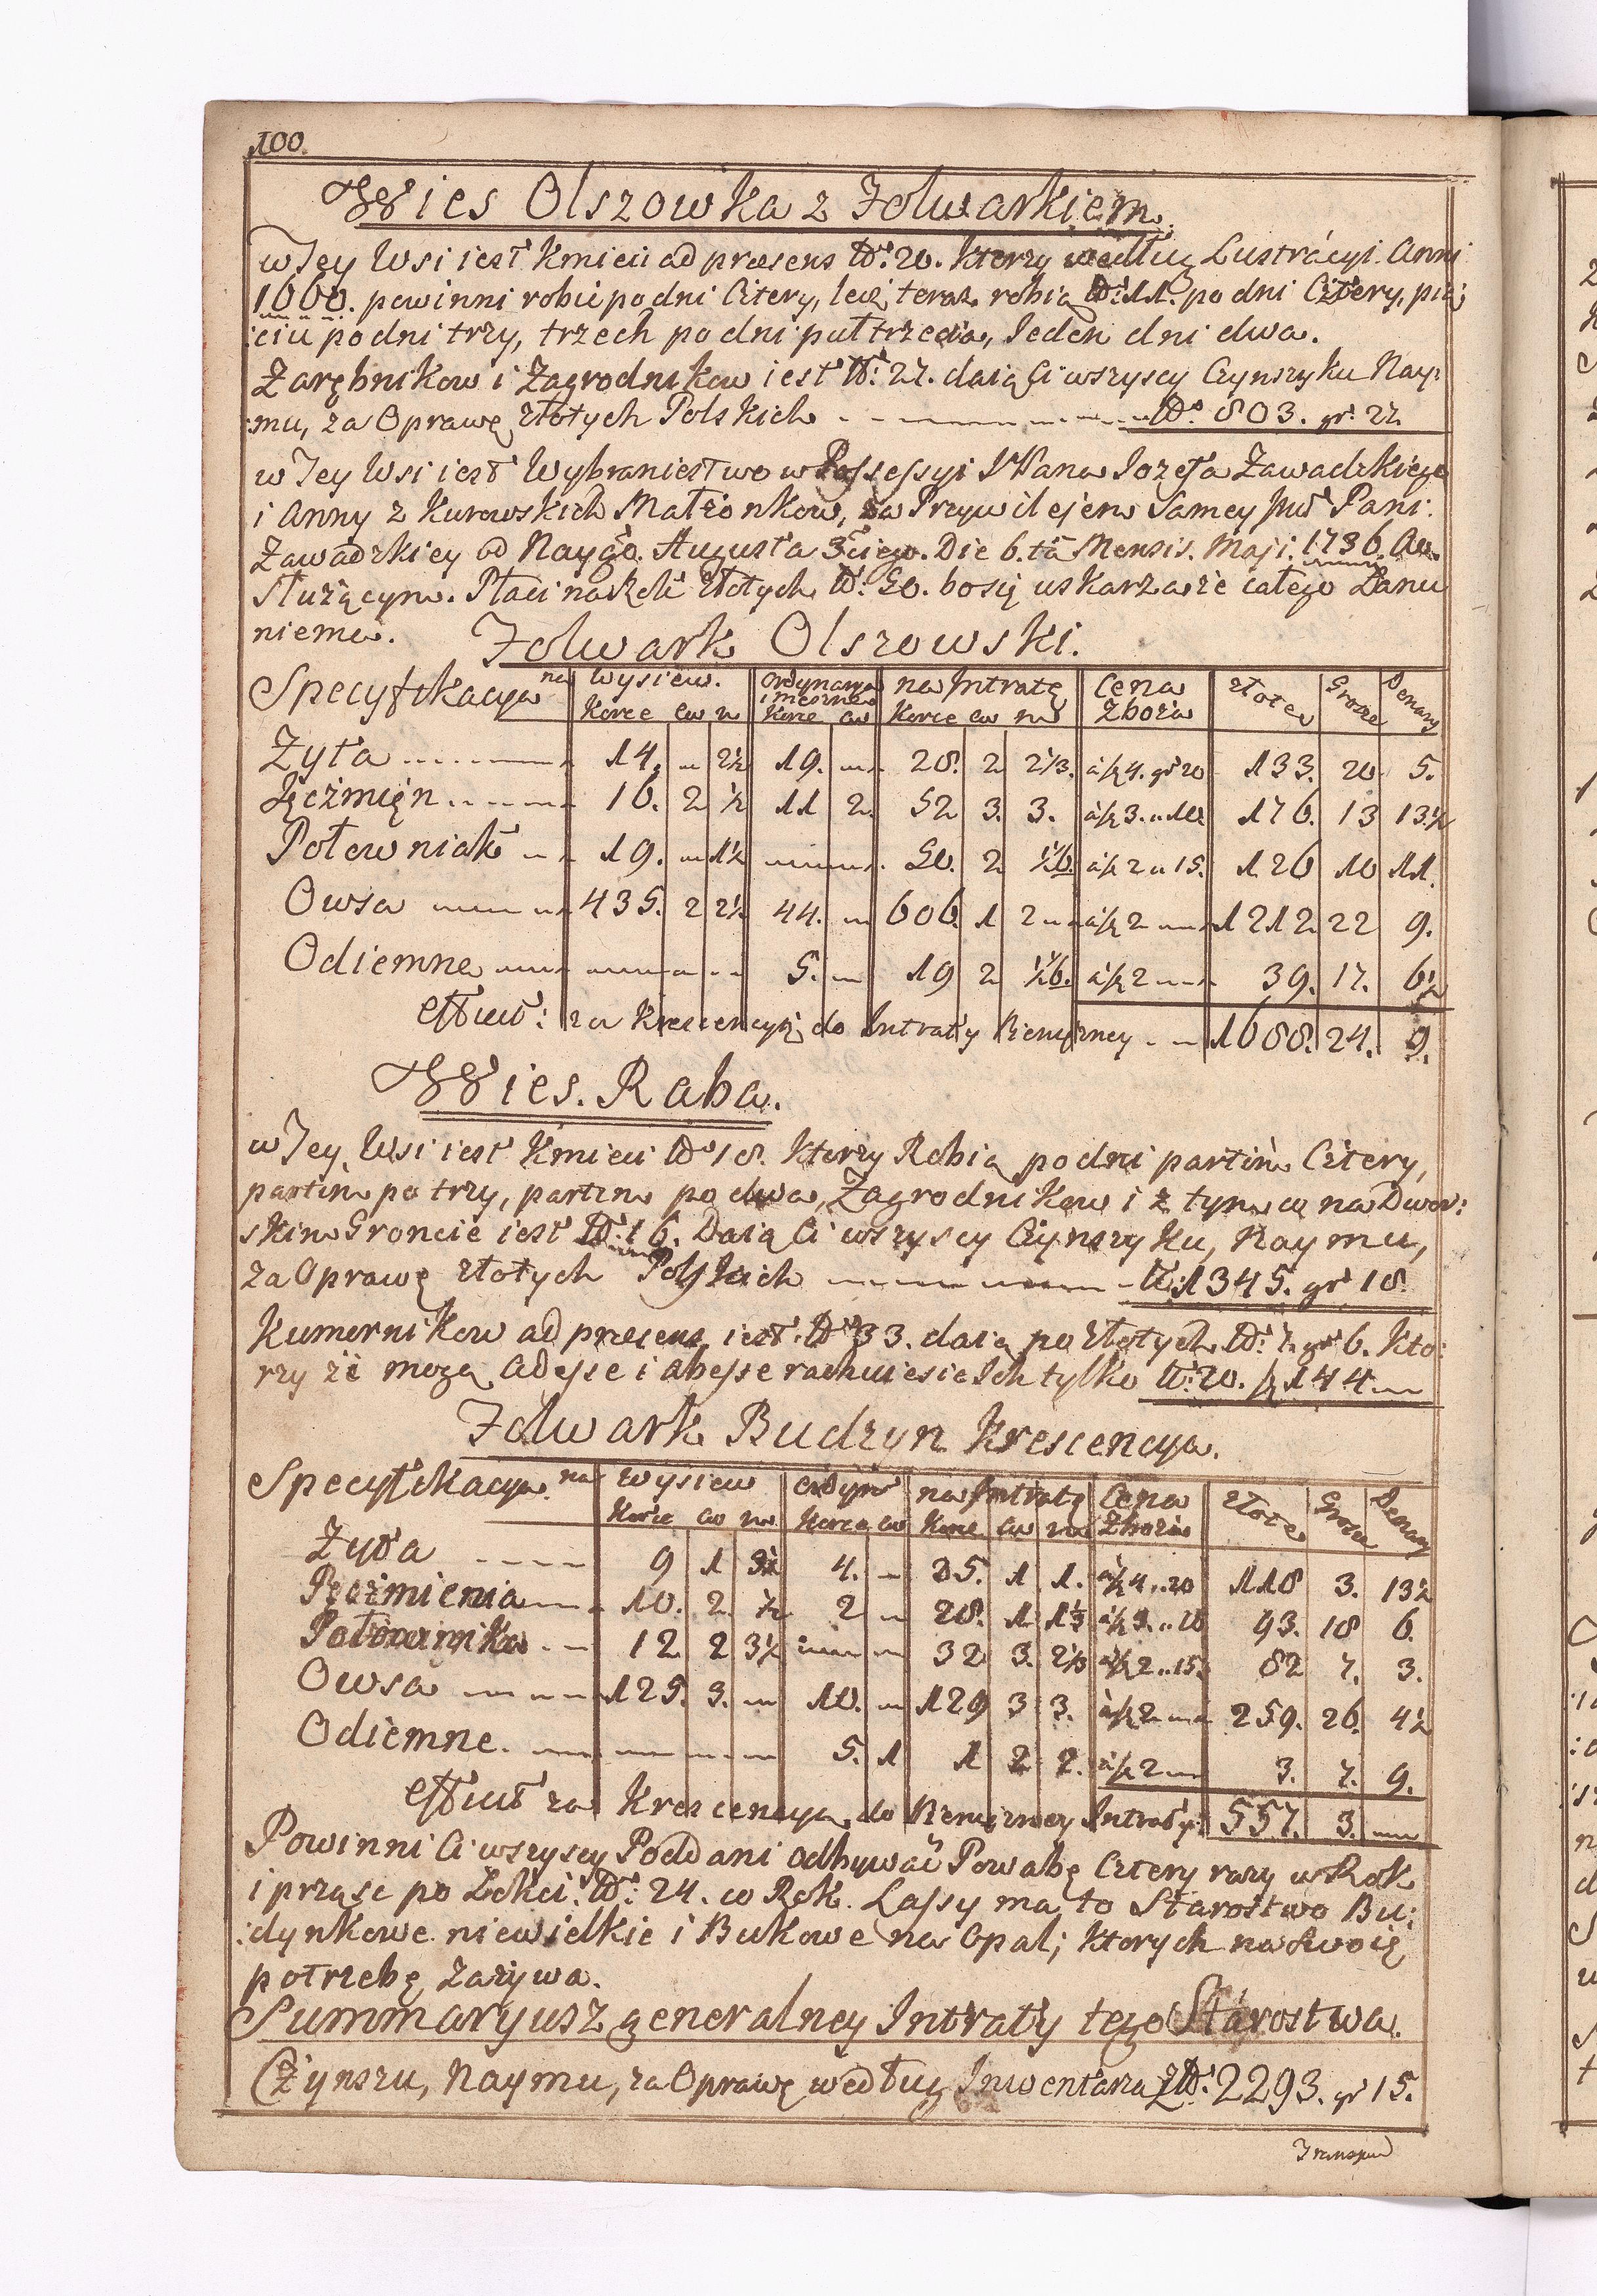 100.
Wies Olszowka z Folwarkiem.
w Tey Wsi iest Kmieci ad præsens No 20. Ktorzy według Lustrácyi Anni
1660. powinni robić po dni Cztery, lecz teraz robią No 11. po dni Cztery, pię:
:ciu po dni trzy, trzech po dni puł trzecia, Ieden dni dwa.
Zarębnikow i Zagrodnikow iest No 27. daią Ci wszyscy Czynszyku Nay:
:mu, za Oprawę złotych Polskich No 803. gr 22.
w Tey Wsi iest Wybraniestwo w Possessyi Pana Iozefa Zawadzkiego
i Anny z Kurowskich Małżonkow, za Przywilejem Samey Pani
Zawadzkiey od Nayiao. Augusta 3ciego. Die 6.ta Mensis Maji 1736. An.
służącym. Płaci na Rok złotych No 50. bo się uskarza że całego Łanu
niema.
Folwark Olszowski.
Specyfikacya na wysiew. Ordynarya i meszne na Intratę Cena Zboża złote Grosze Denary
Korce Cw m Korce Cw Korce Cw m
Zyta 14. 2½ 19. 28. 2 2⅓. a ƶ 4. gr 20 133. 20 5.
Jęczmięn 16. 2 ½ 11 2. 52 3. 3. a ƶ 3. 10 176. 13 13½
Połowniak 19. 1½ 50. 2 ⅙. a ƶ 2 15. 126 10 11.
Owsa 435. 2 2½ 44. 606. 1 2 a ƶ 2 1212 22 9.
Odiemne 5. 19 2 ⅙. a ƶ 2 39. 17. 6½
za Krescencyą do Intraty Rączney 1688. 24. 9.
Wies. Raba.
w Tey Wsi iest Kmieci No 18. Ktorzy Robią po dni partim Cztery,
partim po trzy, partim po dwa, Zagrodnikow i z tym co na Dwor:
skim Groncie iest No 16. Daią Ci wszyscy Czynszyku, Naymu,
za Oprawę złotych Polskich No 1345. gr 18.
Kumornikow ad præsens iest No 33. daią po złotych No 7. gr 6. Kto:
rzy że mogą Adesse i abesse rachuie sie Ich tylko No 20. ƶ 144
Folwark Budzyn Krescencya.
Specyfikacya na wysiew Ordyn na Intratę Cena Zboża złote Grosze Denary
Korce Cw m Korce Cw Korce Cw m
Zyta 9 1 3½ 4. 25. 1 1. a ƶ 4. 20 118 3. 13½
Jęczmienia 10. 2. ½ 2 28. 1. 1⅓ a ƶ 3. 10 93. 18 6.
Połownika 12 2 3½ 32 3. 2⅓ a ƶ 2. 15. 82 7. 3.
Owsa 125. 3. 10. 129 3 3. a ƶ 2 259. 26. 4½
Odiemne. 5. 1 1 2 2. a ƶ 2 3. 7. 9.
za Krescencyą do Intraty 557. 3.
Powinni Ci wszyscy Poddani odbywać Powabę Cztery razy w Rok
i prząsc po Łokci No 24. w Rok. Lassy ma to Starostwo Bu:
:dynkowe niewielkie i Bukowe na Opał; Ktorych na swoię
potrzebę zażywa.
Summaryusz generalney Intraty tego Starostwa.
Czynszu, Naymu, za Oprawę według Inwentarza No 2293. gr 15.
Transpor